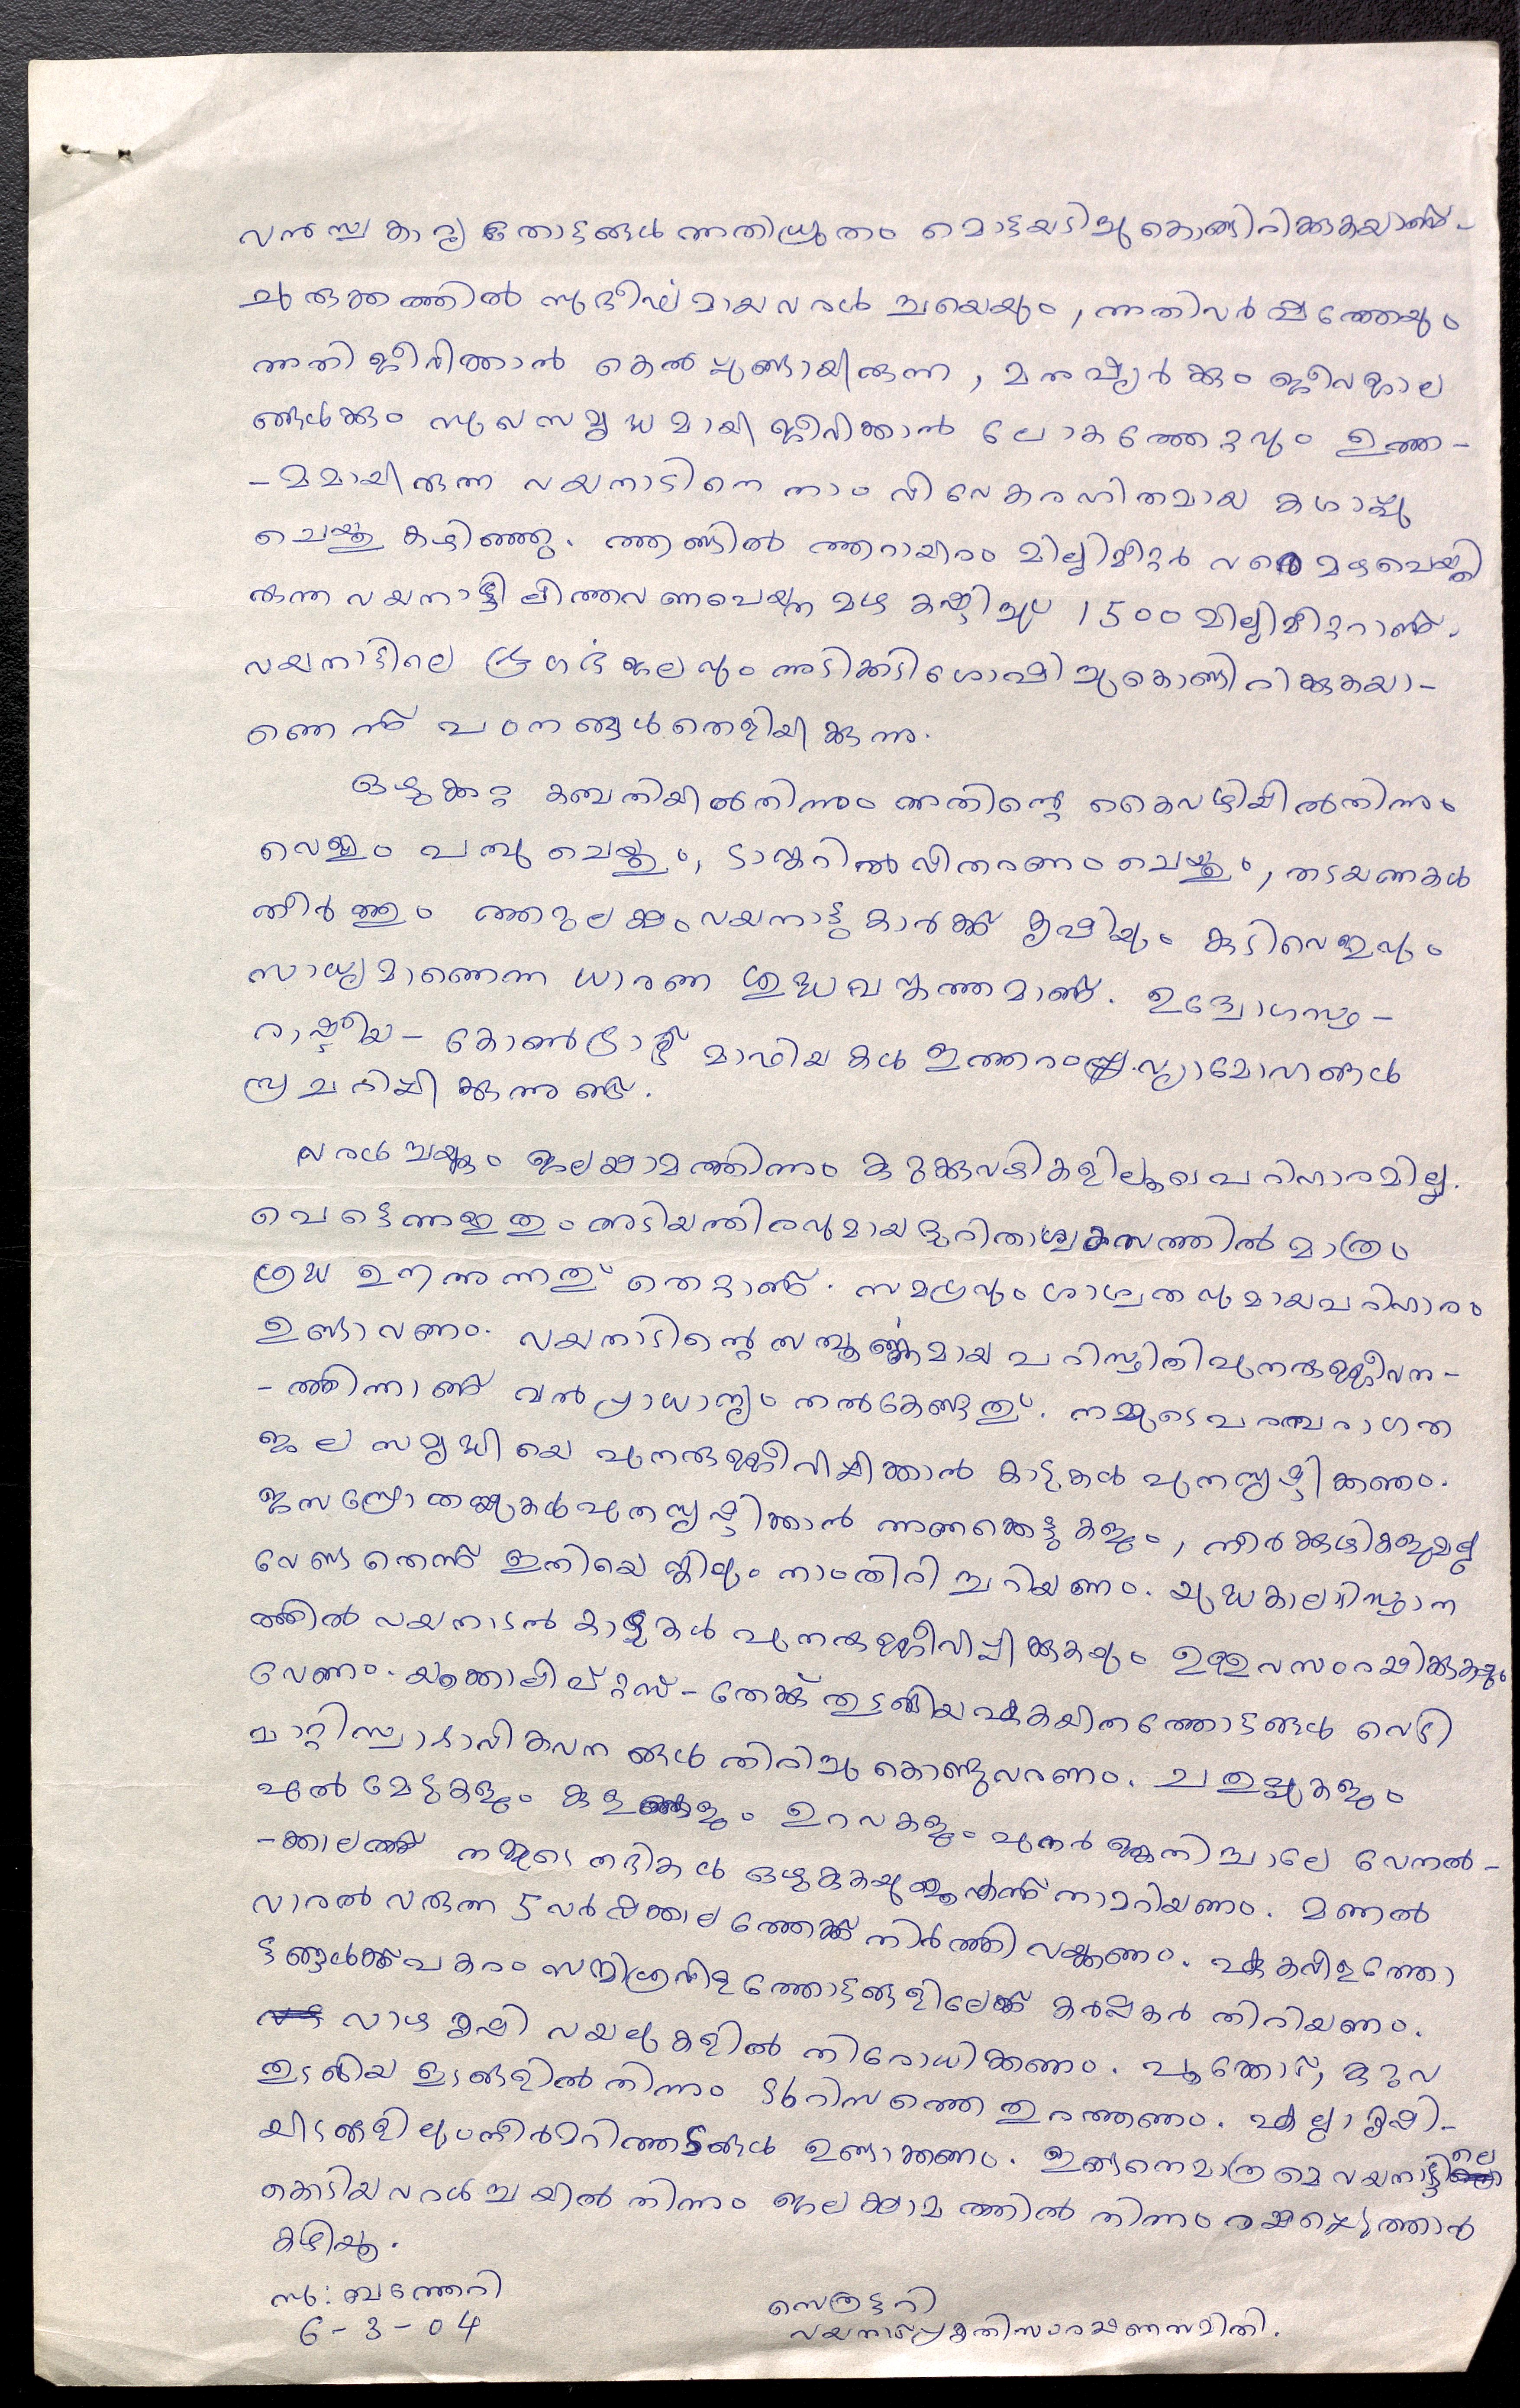 വൻ സ്വകാര്യ തോട്ടങ്ങൾ അതിദ്രുതം മൊട്ടയടിച്ചുകൊണ്ടിരിക്കുകയാണ്.
ചുരുക്കത്തിൽ സുദീർഘമായ വരൾച്ചയെയും, അതിവർഷത്തേയും
അതിജീവിക്കാൻ കെൽപ്പുണ്ടായിരുന്ന, മനുഷ്യർക്കും ജീവജാല
ങ്ങൾക്കും സുഖസമൃദ്ധമായി ജീവിക്കാൻ ലോകത്തേറ്റവും ഉത്ത-
-മമായിരുന്ന വയനാടിനെ നാം വിവേകരഹിതമായ കശാപ്പു
ചെയ്തു കഴിഞ്ഞു. ആണ്ടിൽ ആറായിരം മില്ലിമീറ്റർ വരെ മഴപെയ്തി
രുന്ന വയനാട്ടിലിത്തവണ പെയ്ത മഴ കഷ്ടിച്ചു 1500 മില്ലിമീറ്ററാണ്.
വയനാട്ടിലെ ഭൂഗർഭജലവും അടിക്കടി ശോഷിച്ചുകൊണ്ടിരിക്കുകയാ-
ണെന്ന് പഠനങ്ങൾ തെളിയിക്കുന്നു.
ഒഴുക്കറ്റ കബനിയിൽനിന്നും അതിന്റെ കൈവഴിയിൽനിന്നും
വെള്ളം പമ്പുചെയ്തും, ടാങ്കറിൽ വിതരണം ചെയ്തും, തടയണകൾ
തീർത്തും ആറുലക്ഷം വയനാട്ടുകാർക്ക് കൃഷിയും കുടിവെള്ളവും
സാധ്യമാണെന്ന ധാരണ ശുദ്ധഭോഷത്തമാണ്. ഉദ്യോഗസ്ഥ-
രാഷ്ട്രീയ- കോൺട്രാക്ട് മാഫിയകൾ ഇത്തരം വ്യാമോഹങ്ങൾ
പ്രചരിപ്പിക്കുന്നുണ്ട്.
വരൾച്ചയ്ക്കും ജലക്ഷാമത്തിന്നും കുറുക്കുവഴികളിലൂടെ പരിഹാരമില്ല.
പെട്ടെന്നുള്ളതും അടിയന്തിരവുമായ ദുരിതാശ്വാസത്തിൽ മാത്രം
ശ്രദ്ധ ഊന്നുന്നത് തെറ്റാണ്. സമഗ്രവും ശാശ്വതവുമായ പരിഹാരം
ഉണ്ടാവണം. വയനാടിന്റെ സമ്പൂർണ്ണമായ പരിസ്ഥിതി പുനരുജ്ജീവന-
-ത്തിന്നാണ് വൻ പ്രാധാന്യം നൽകേണ്ടത്. നമ്മുടെ പരമ്പരാഗത
ജല സമൃദ്ധിയെ പുനരുജ്ജീവിപ്പിക്കാൻ കാടുകൾ പുനസൃഷ്ടിക്കണം.
ജലസ്രോതസ്സുകൾ പുനസൃഷ്ടിക്കാൻ അണക്കെട്ടുകളും, നീർക്കുഴികളുമല്ല
വേണ്ടതെന്ന് ഇനിയെങ്കിലും നാം തിരിച്ചറിയണം. യുദ്ധകാലടിസ്ഥാന
ത്തിൽ വയനാടൻ കാടുകൾ പുനരുജ്ജീവിപ്പിക്കുകയും ഉള്ളവ സംരക്ഷിക്കുകയും
വേണം. യൂക്കാലിപ്റ്റസ്-തേക്ക് തുടങ്ങിയ ഏകയിനത്തോട്ടങ്ങൾ വെട്ടി
മാറ്റി സ്വാഭാവികവനങ്ങൾ തിരിച്ചു കൊണ്ടുവരണം. ചതുപ്പുകളും
പുൽമേടുകളും കുളങ്ങളും ഉറവകളും പുനർജ്ജനിച്ചാലേ വേനൽ-
-ക്കാലത്ത് നമ്മുടെ നദികൾ ഒഴുകുകയുള്ളൂ എന്ന് നാമറിയണം. മണൽ
വാരൽ വരുന്ന 5 വർഷക്കാലത്തേക്ക് നിർത്തി വയ്ക്കണം. ഏകവിളത്തോ
ട്ടങ്ങൾക്ക് പകരം സമ്മിശ്രവിളത്തോട്ടങ്ങളിലേക്ക് കർഷകർ തിരിയണം.
വാഴ കൃഷി വയലുകളിൽ നിരോധിക്കണം. പൂക്കോട്, കുറുവ
തുടങ്ങിയ ഇടങ്ങളിൽ നിന്നും ടൂറിസത്തെ തുരത്തണം. എല്ലാ കൃഷി-
യിടങ്ങളിലും നീർമറിത്തടങ്ങൾ ഉണ്ടാക്കണം. ഇങ്ങനെ മാത്രമെ വയനാട്ടിലെ
കൊടിയ വരൾച്ചയിൽ നിന്നും ജലക്ഷാമത്തിൽ നിന്നും രക്ഷപ്പെടുത്താൻ
കഴിയൂ.
സു: ബത്തേരി
6-3-04
സെക്രട്ടറി
വയനാട് പ്രകൃതി സംരക്ഷണ സമിതി.